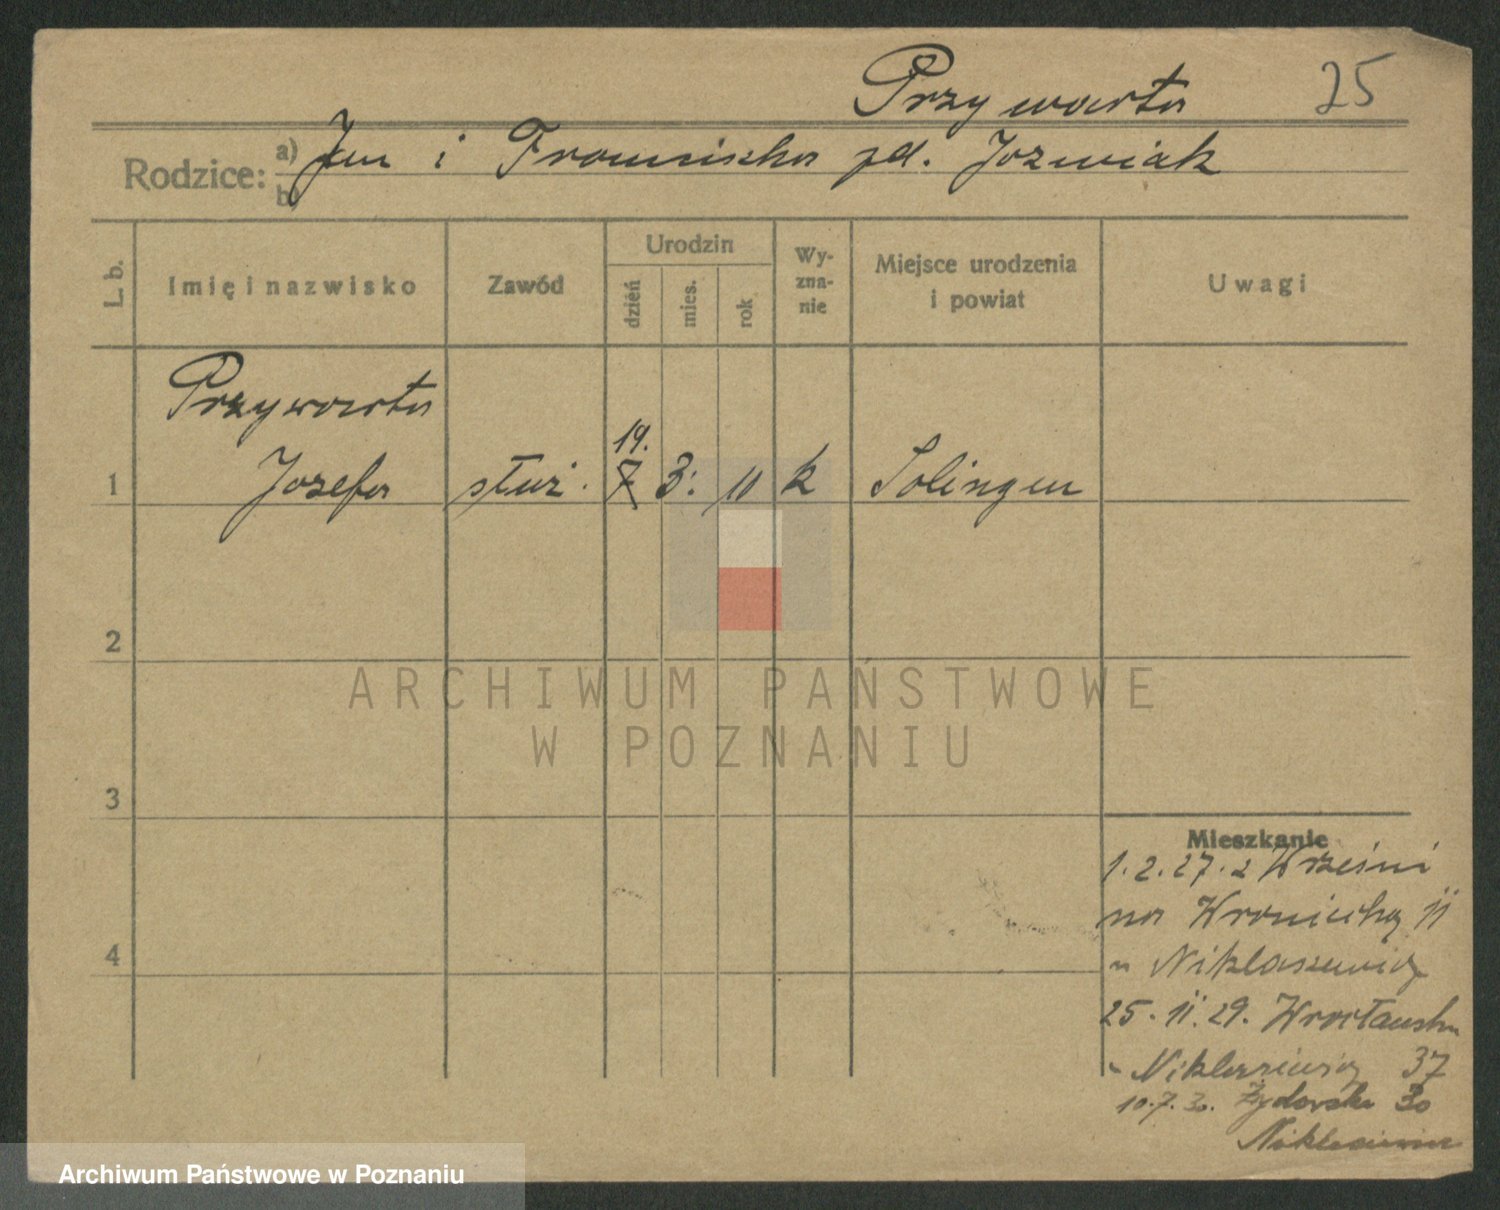 Przywarta 25
Rodzice: a) Jan i Franciszka zd. Jozwiak
b)
L. b. Imię i nazwisko Zawód Urodzin dzień mies. rok Wy-zna-nie Miejsce urodzenia i powiat Uwagi
Przywarta
19.
1 Jozefa służ. 7 3. 11 k Solingen
2
ARCHIWUM PAŃSTWOWE
W POZNANIU
3
Mieszkanie
1.2.27. z Wrześni
na Wroniecką 11
u Niklasewicz
4
25.11.29. Wrocławska
37
10.7.30. Żydowska 30
Archiwum Państwowe w Poznaniu